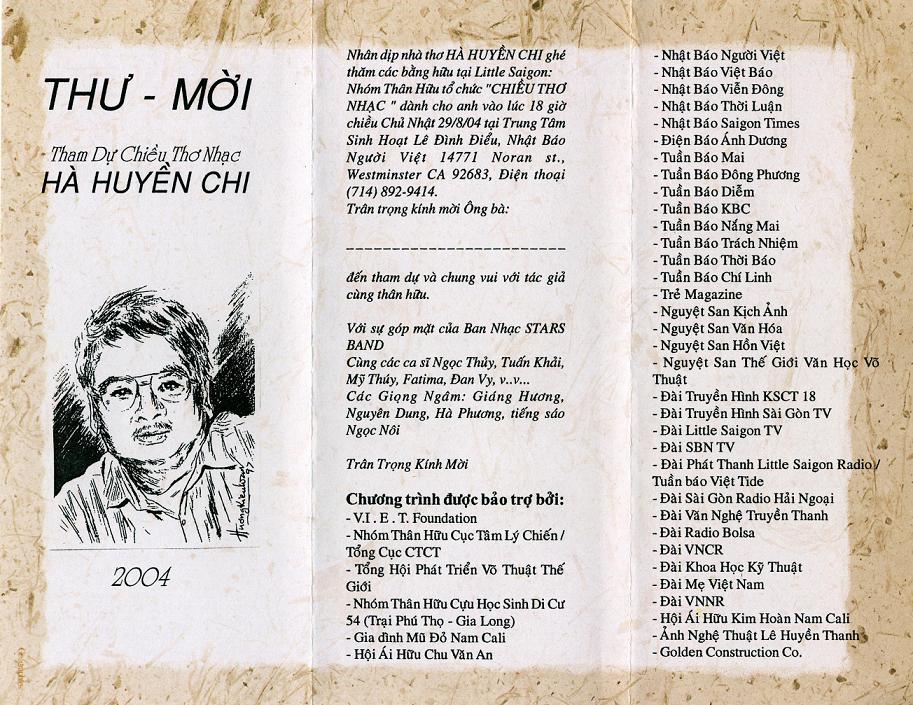 THƯ - MỜI
Tham Dự Chiều Thơ Nhạc
HÀ HUYỀN CHI
2004
Nhân dịp nhà thơ HÀ HUYỀN CHI ghé
thăm các bằng hữu tại Little Saigon:
Nhóm Thân Hữu tổ chức "CHIỀU THƠ
NHẠC " dành cho anh vào lúc 18 giờ
chiều Chủ Nhật 29/8/04 tại Trung Tâm
Sinh Hoạt Lê Đình Điểu, Nhật Báo
Người Việt 14771 Noran st.,
Westminster CA 92683, Điện thoại
(714) 892-9414.
Trân trọng kính mời Ông bà:
________________________
đến tham dự và chung vui với tác giả
cùng thân hữu.
Với sự góp mặt của Ban Nhạc STARS
BAND
Cùng các ca sĩ Ngọc Thủy, Tuấn Khải,
Mỹ Thúy, Fatima, Đan Vy, v..v...
Các Giọng Ngâm: Giáng Hương,
Nguyên Dung, Hà Phương, tiếng sáo
Ngọc Nôi
Trân Trọng Kính Mời
Chương trình được bảo trợ bởi:
- V.I . E .T. Foundation
- Nhóm Thân Hữu Cục Tâm Lý Chiến /
Tổng Cục CTCT
- Tổng Hội Phát Triển Võ Thuật Thế
Giới
- Nhóm Thân Hữu Cựu Học Sinh Di Cư
54 (Trại Phú Thọ - Gia Long)
- Gia đình Mũ Đỏ Nam Cali
- Hội Ái Hữu Chu Văn An
- Nhật Báo Người Việt
- Nhật Báo Việt Báo
- Nhật Báo Viễn Đông
- Nhật Báo Thời Luận
- Nhật Báo Saigon Times
- Điện Báo Ánh Dương
- Tuần Báo Mai
- Tuần Báo Đông Phương
- Tuần Báo Diễm
- Tuần Báo KBC
- Tuần Báo Nắng Mai
- Tuần Báo Trách Nhiệm
- Tuần Báo Thời Báo
- Tuần Báo Chí Linh
- Trẻ Magazine
- Nguyệt San Kịch Ảnh
- Nguyệt San Văn Hóa
- Nguyệt San Hồn Việt
- Nguyệt San Thế Giới Văn Học Võ
Thuật
- Đài Truyền Hình KSCT 18
- Đài Truyền Hình Sài Gòn TV
- Đài Little Saigon TV
- Đài SBN TV
- Đài Phát Thanh Little Saigon Radio /
Tuần báo Việt Tide
- Đài Sài Gòn Radio Hải Ngoại
- Đài Văn Nghệ Truyền Thanh
- Đài Radio Bolsa
- Đài VNCR
- Đài Khoa Học Kỹ Thuật
- Đài Mẹ Việt Nam
- Đài VNNR
- Hội Ái Hữu Kim Hoàn Nam Cali
- Ảnh Nghệ Thuật Lê Huyền Thanh
- Golden Construction Co.